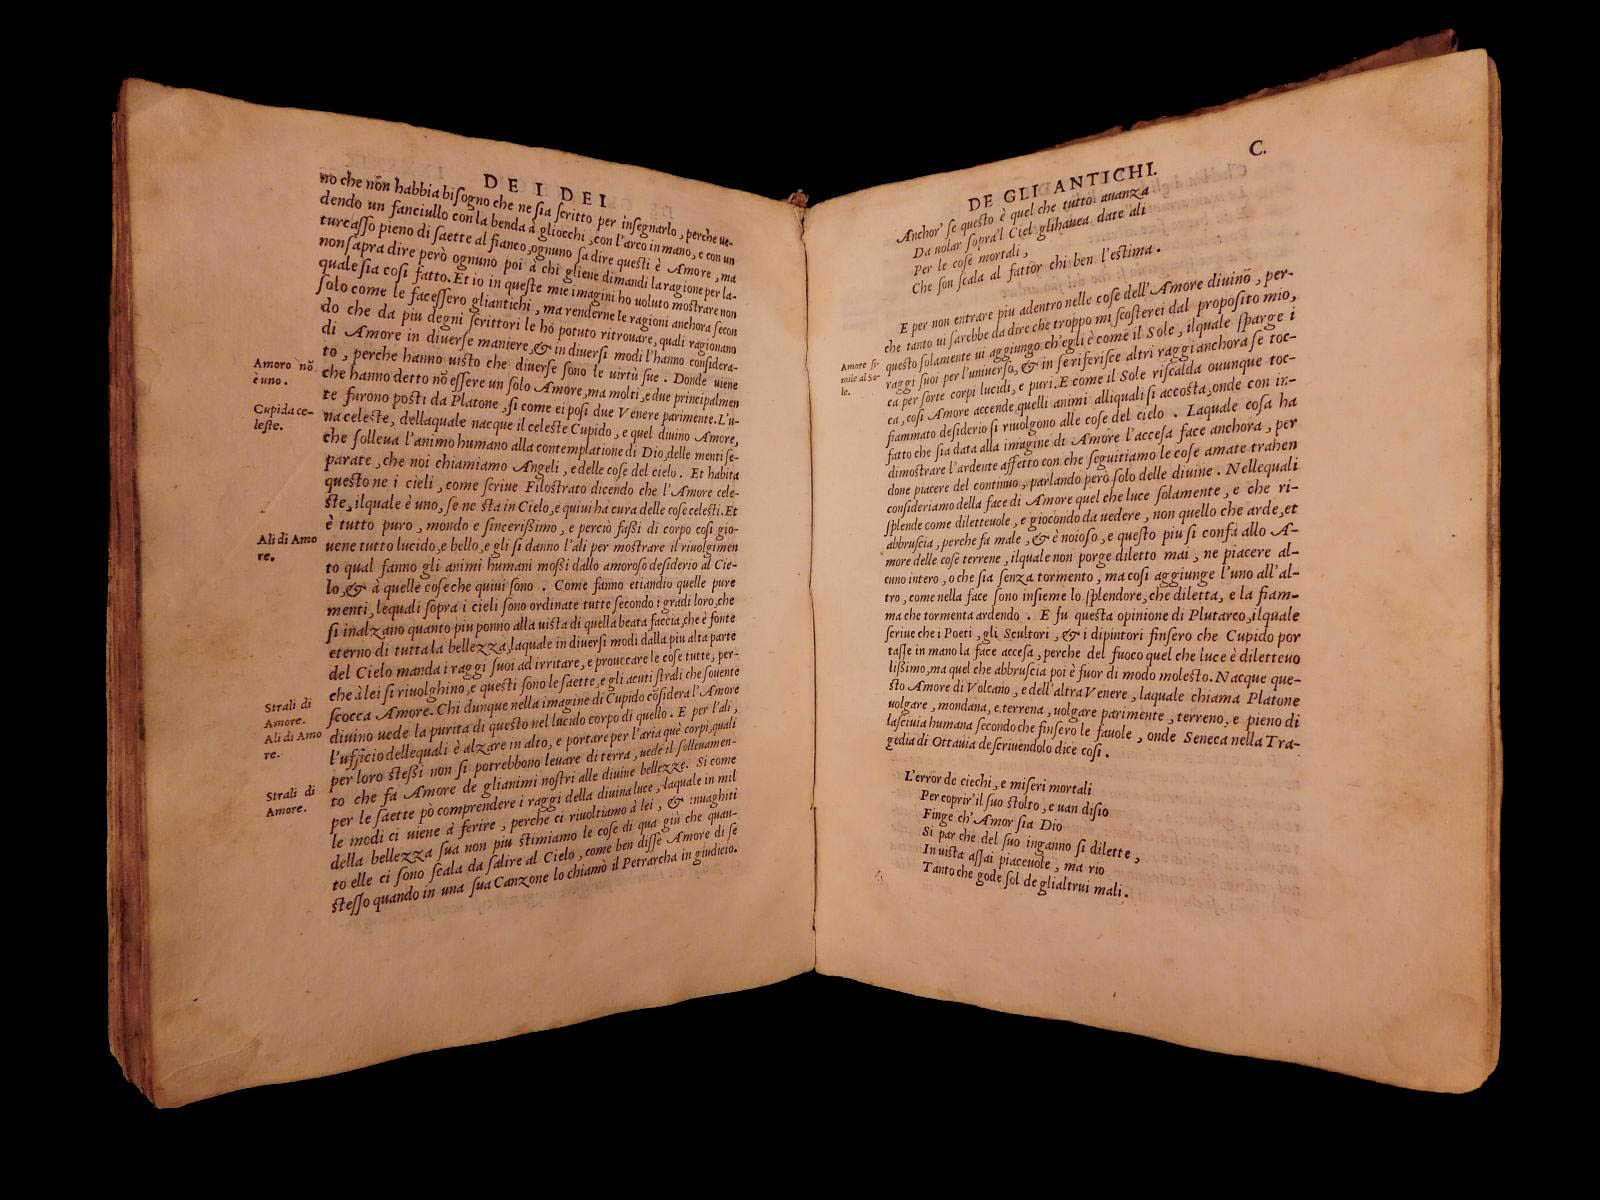 DE I DEI
no che nõn habbia biſogno che ne ſia ſcritto per inſegnarlo, perche ue-
dendo un fanciullo con la benda à gliocchi, con l'arco in mano, e con un
turcaſſo pieno di ſaette al fianco, ognuno ſa dire queſti è Amore, ma
non ſaprà dire però ognuno poi à chi gliene dimandi la ragione per la-
quale ſia coſi fatto. Et io in queſte mie imagini ho uoluto moſtrare non
ſolo come le faceſſero gliantichi, ma renderne le ragioni anchora ſecon
do che da piu degni ſcrittori le hò potuto ritrouare, quali ragionano
di Amore in diuerſe maniere, & in diuerſi modi l'hanno conſidera-
to, perche hanno uiſto che diuerſe ſono le uirtù ſue. Donde uiene
che hanno detto nõ eſſere un ſolo Amore, ma molti, e due principalmen
te furono poſti da Platone, ſi come ei poſi due Venere parimente. L'u-
na celeſte, dellaquale nacque il celeſte Cupido, e quel diuino Amore,
che ſolleua l'animo humano alla contemplatione di Dio, delle menti ſe-
parate, che noi chiamiamo Angeli, e delle coſe del cielo. Et habita
queſto ne i cieli, come ſcriue Filoſtrato dicendo che l'Amore cele-
ſte, ilquale è uno, ſe ne ſta in Cielo, e quiui ha cura delle coſe celeſti. Et
è tutto puro, mondo e ſinceriſſimo, e perciò faſſi di corpo coſi gio-
uene tutto lucido, e bello, e gli ſi danno l'ali per moſtrare il riuolgimen
to qual fanno gli animi humani moſſi dallo amoroſo deſiderio al Cie-
lo, & à quelle coſe che quiui ſono. Come fanno etiandio quelle pure
menti, lequali ſopra i cieli ſono ordinate tutte ſecondo i gradi loro, che
ſi inalzano quanto piu ponno alla uiſta di quella beata faccia, che è fonte
eterno di tutta la bellezza, laquale in diuerſi modi dalla piu alta parte
del Cielo manda i raggi ſuoi ad irritare, e prouccare le coſe tutte, per-
che à lei ſi riuolghino, e queſti ſono le ſaette, e gli acuti ſtrali che ſouente
ſcocca Amore. Chi dunque nella imagine di Cupido cõſidera l'Amore
diuino uede la purita di queſto nel lucido corpo di quello. E per l'ali,
l'ufficio dellequali è alzare in alto, e portare per l'aria què corpi, quali
per loro ſteſſi non ſi potrebbono leuare di terra, uede il ſolleuamen-
to che fa Amore de glianimi noſtri alle diuine bellezze. Si come
per le ſaette pò comprendere i raggi della diuina luce, laquale in mil
le modi ci uiene à ferire, perche ci riuoltiamo à lei, & inuaghiti
della bellezza ſua non piu ſtimiamo le coſe di qua giù che quan-
to elle ci ſono ſcala da ſalire al Cielo, come ben diſſe Amore di ſe
ſteſſo quando in una ſua Canzone lo chiamò il Petrarcha in giudicio.
Amoro nõ
è uno.
Cupida ce-
leſte.
Ali di Amo
re.
Strali di
Amore.
Ali di Amo
re.
Strali di
Amore.
DE GLI ANTICHI.
C.
Anchor' ſe queſto è quel che tutto auanza
Da uolar ſopra'l Ciel glihauea date ali
Per le coſe mortali,
Che ſon ſcala al fattor chi ben l'eſtima.
E per non entrare piu adentro nelle coſe dell'Amore diuino, per-
che tanto ui ſarebbe da dire che troppo mi ſcoſterei dal propoſito mio,
queſto ſolamente ui aggiungo ch'egli è come il Sole, ilquale ſparge i
raggi ſuoi per l'uniuerſo, & in ſe riferiſce altri raggi anchora ſe toc-
ca per ſorte corpi lucidi, e puri. E come il Sole riſcalda ouunque toc-
ca, coſi Amore accende quelli animi alliquali ſi accoſta, onde con in-
fiammato deſiderio ſi riuolgono alle coſe del cielo. Laquale coſa ha
fatto che ſia data alla imagine di Amore l'acceſa face anchora, per
dimoſtrare l'ardente affetto con che ſeguitiamo le coſe amate trahen
done piacere del continuo, parlando però ſolo delle diuine. Nellequali
conſideriamo della face di Amore quel che luce ſolamente, e che ri-
ſplende come diletteuole, e giocondo da uedere, non quello che arde, et
abbruſcia, perche fa male, & è noioſo, e queſto piu ſi confà allo A-
more delle coſe terrene, ilquale non porge diletto mai, ne piacere al-
cuno intero, o che ſia ſenza tormento, ma coſi aggiunge l'uno all'al-
tro, come nella face ſono inſieme lo ſplendore, che diletta, e la fiam-
ma che tormenta ardendo. E fu queſta opinione di Plutarco, ilquale
ſcriue che i Poeti, gli Scultori, & i dipintori finſero che Cupido por
taſſe in mano la face acceſa, perche del fuoco quel che luce è dilettevo
liſſimo, ma quel che abbruſcia poi è fuor di modo moleſto. Nacque que-
ſto Amore di Volcano, e dell'altra Venere, laquale chiama Platone
uolgare, mondana, e terrena, uolgare parimente, terreno, e pieno di
laſciuia humana ſecondo che finſero le fauole, onde Seneca nella Tra-
gedia di Ottauia deſcriuendolo dice coſi.
L'error de ciechi, e miſeri mortali
Per coprir'il ſuo ſtolto, e uan diſio
Finge ch'Amor ſia Dio
Si par che del ſuo inganno ſi dilette,
In uiſta aſſai piaceuole, ma rio
Tanto che gode ſol de glialtrui mali.
Amore ſi-
mile al So-
le.